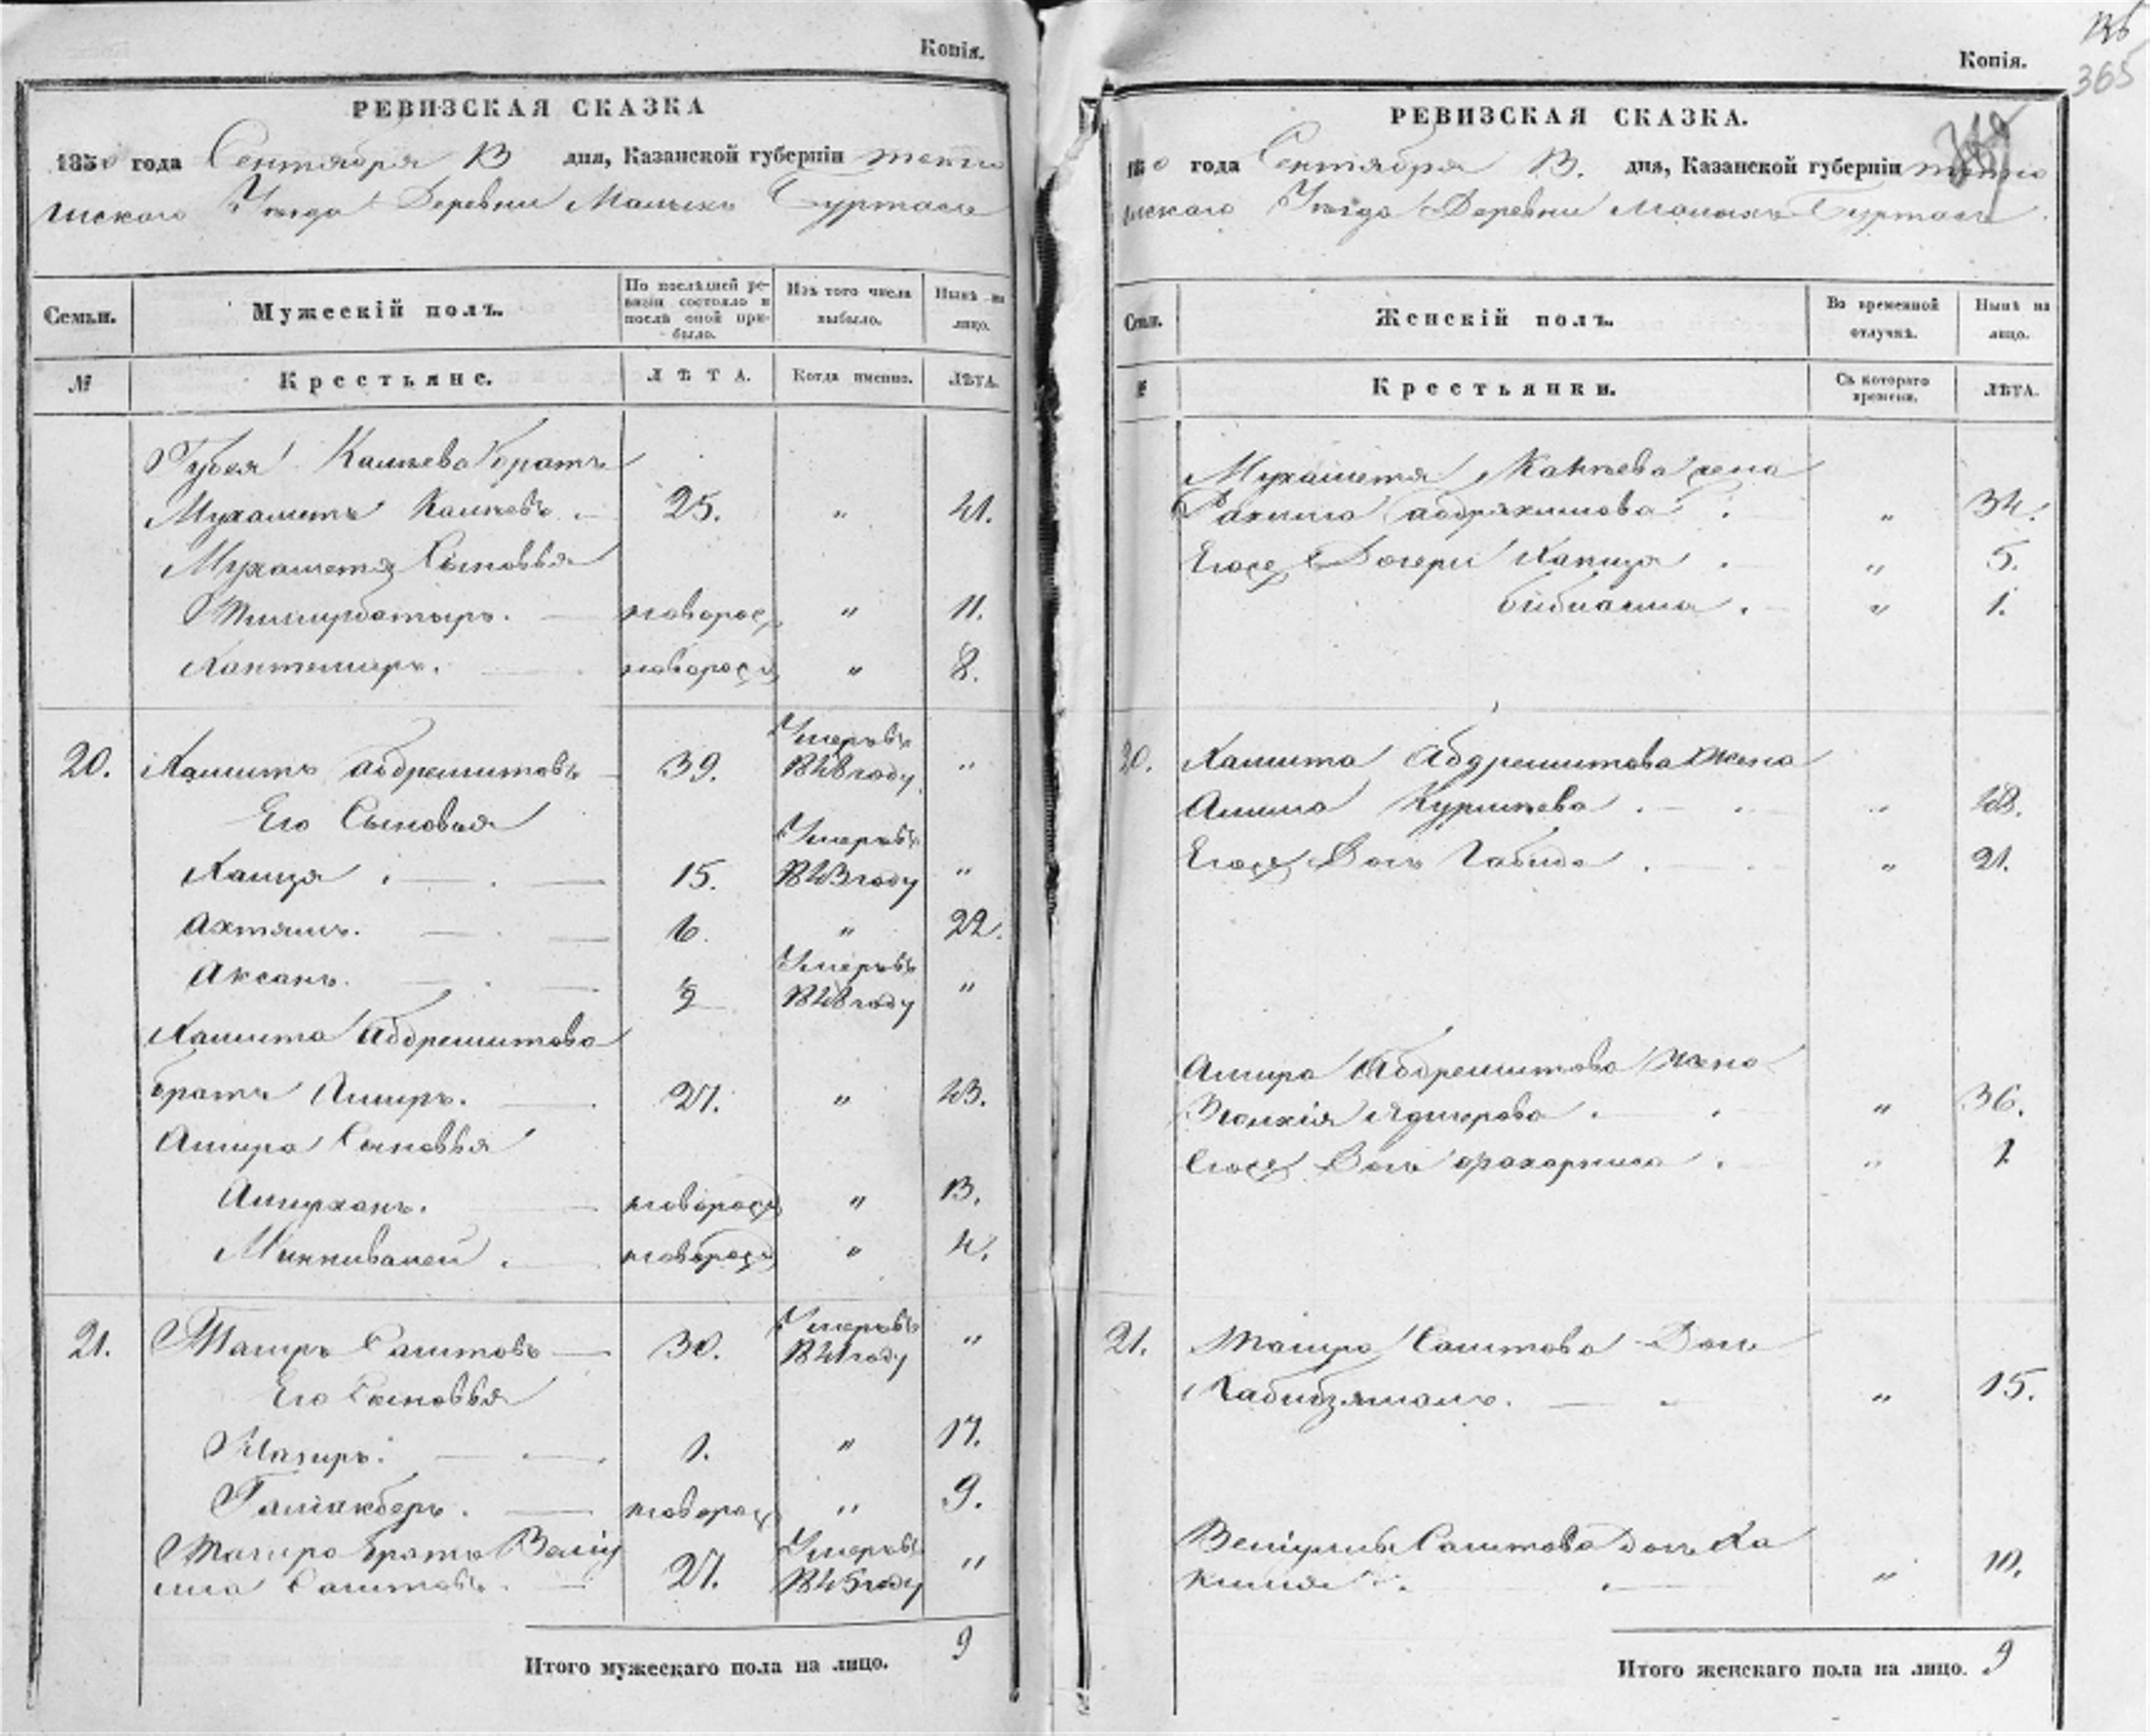 Копія.
РЕВИЗСКАЯ СКАЗКА
1850 года Сентября 13 дня, Казанской губерніи тетю
шскаго Уѣзда Деревни Малыхъ Буртасъ
Семьи.
Мужескій полъ.
По послѣдней ре-
визіи состояло и
послѣ оной при-
было.
Изъ того числа
выбыло.
Нынѣ на
лицо.
№
Крестьяне.
ЛѢТА.
Когда именно.
ЛѢТА.
братъ
Мухаметъ 25. " 41.
Мухаметя Сыновья
Тимирбатыръ. новорож " 11.
Кантемиръ. новорож " 8.
20. Хамитъ Абдрешитовъ 39. Умеръ въ 1848 году "
Его Сыновья
Хамзя 15. Умеръ въ 1843 году "
Ахтямъ. 6. " 22.
Аксанъ. ½ Умеръ въ 1848 году "
Хамита Абдрешитова
братъ Амиръ. 27. " 43.
Амира Сыновья
Амирханъ. новорож " 13.
Миннивалей. новорож " 4.
21. Тагиръ Саитовъ 30. Умеръ въ 1841 году "
Его Сыновья
Шагиръ. 1. " 17.
Галіакберъ. новорож " 9.
Тагира братъ Велиу
лла Саитовъ. 27. Умеръ въ 1845 году "
Итого мужескаго пола на лицо. 9
Копія.
365
РЕВИЗСКАЯ СКАЗКА.
1850 года Сентября 13. дня, Казанской губерніи тетю
шскаго Уѣзда Деревни Малыхъ Буртасъ
Семьи.
Женскій полъ.
Во временной
отлучкѣ.
Нынѣ на
лицо.
№
Крестьянки.
Съ котораго
времени.
ЛѢТА.
Мухаметя жена
Рахима Абдряхимова " 34.
Ея Дочери Хапиза " 5.
Бибиамина " 1.
20. Хамита Абдрешитова Жена
Амина " 48.
Ея Дочь Габида " 21.
Амира Абдрешитова Жена
Ядигерова " 36.
Ея Дочь " 1
21. Тагира Саитова Дочь
Хабибзямалъ. " 15.
Велиуллы Саитова Дочь Ха
кимя " 10.
Итого женскаго пола на лицо. 9